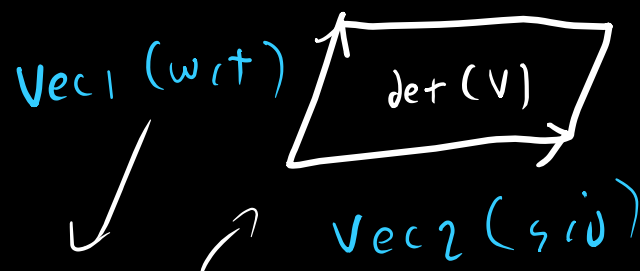 Vec1 (w,t)
det(V)
Vec2 (s,v)